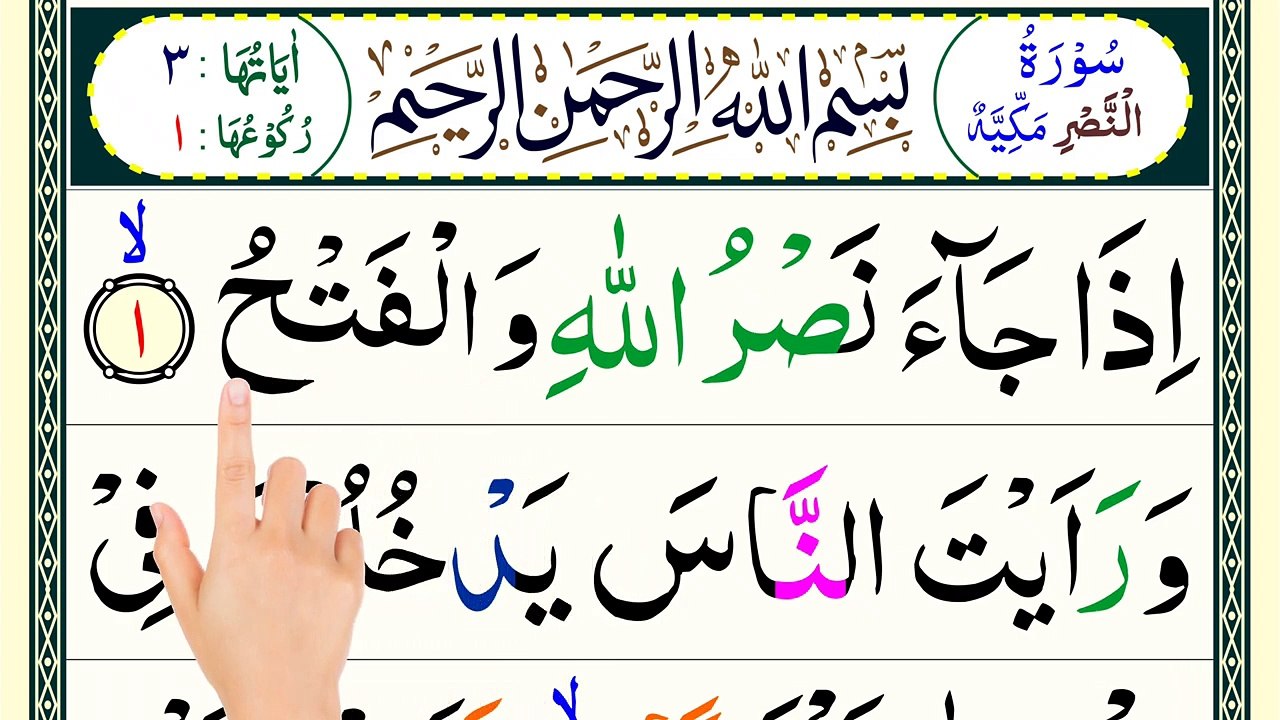 سُوْرَةُ
الْنَّصْرِ مَكِّيَّهٌ
بِسْمِ اللهِ الرَّحْمٰنِ الرَّحِيْمِ
اٰيَاتُهَا : ٣
رُكُوْعُهَا : ١
اِذَا جَآءَ نَصْرُ اللّٰهِ وَالْفَتْحُ ١ لا
وَرَاَيْتَ النَّاسَ فِيْ